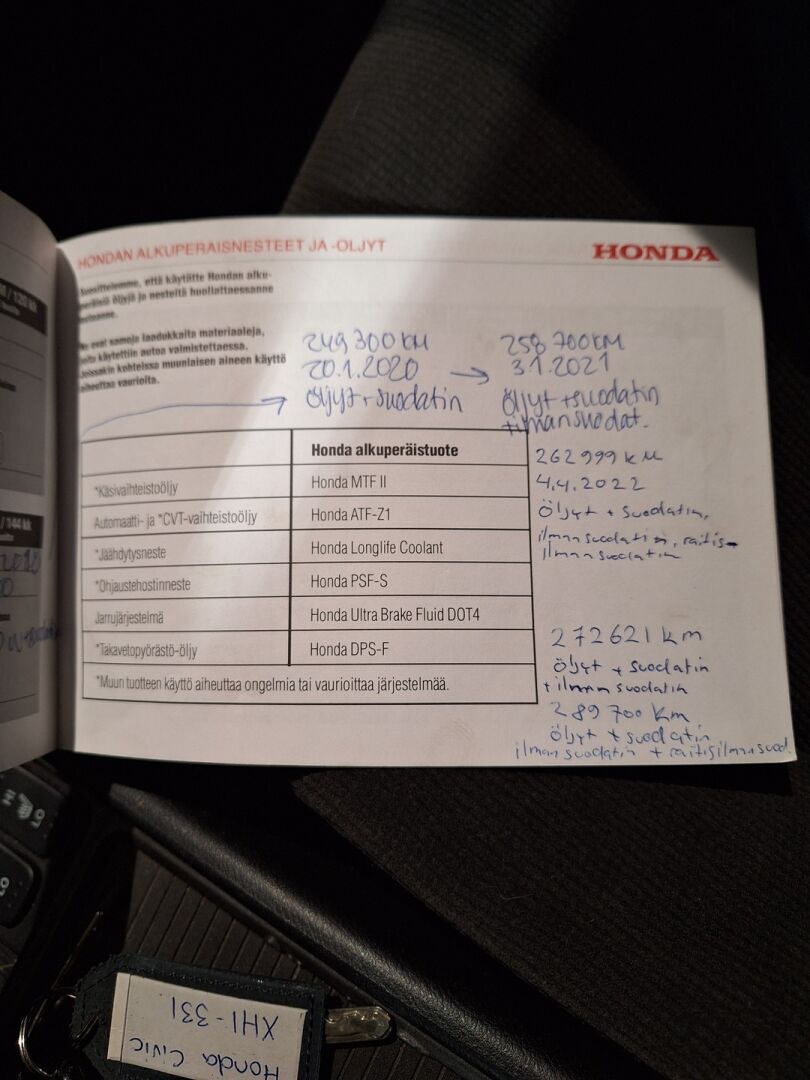 HONDAN ALKUPERÄISNESTEET JA -ÖLJYT
HONDA
Suosittelemme, että käytätte Hondan alku-
peräisiä öljyjä ja nesteitä huollattaessanne
autoanne.
Ne ovat samoja laadukkaita materiaaleja,
joita käytettiin autoa valmistettaessa.
Joissakin kohteissa muunlaisen aineen käyttö
aiheuttaa vaurioita.
249 300 KM
20.1.2020 →
öljyt + suodatin
258 700KM
3.1.2021
öljyt + suodatin
+ilmansuodat.
Honda alkuperäistuote
*Käsivaihteistoöljy Honda MTF II
Automaatti- ja *CVT-vaihteistoöljy Honda ATF-Z1
*Jäähdytysneste Honda Longlife Coolant
*Ohjaustehostinneste Honda PSF-S
Jarrujärjestelmä Honda Ultra Brake Fluid DOT4
*Takavetopyörästö-öljy Honda DPS-F
*Muun tuotteen käyttö aiheuttaa ongelmia tai vaurioittaa järjestelmää.
262 999 KM
4.4.2022
öljyt + suodatin,
ilmansuodatin, raitis-
ilmansuodatin
272621 km
öljyt + suodatin
+ ilmansuodatin
289 700 km
öljyt + suodatin
ilmansuodatin + raitisilmansuod.
/ 120 kk
/ 144 kk
Honda Civic
XHI-331